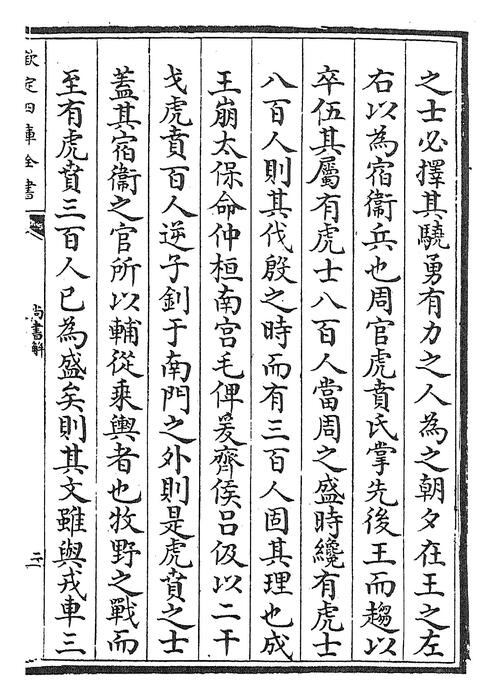 之士必擇其驍勇有力之人為之朝夕在王之左
右以為宿衞兵也周官虎賁氏掌先後王而趨以
卒伍其屬有虎士八百人當周之盛時纔有虎士
八百人則其伐殷之時而有三百人固其理也成
王崩太保命仲桓南宫毛俾爰齊侯吕伋以二干
戈虎賁百人逆子釗于南門之外則是虎賁之士
蓋其宿衞之官所以輔從乘輿者也牧野之戰而
至有虎賁三百人已為盛矣則其文雖與戎車三
欽定四庫全書
尚書解